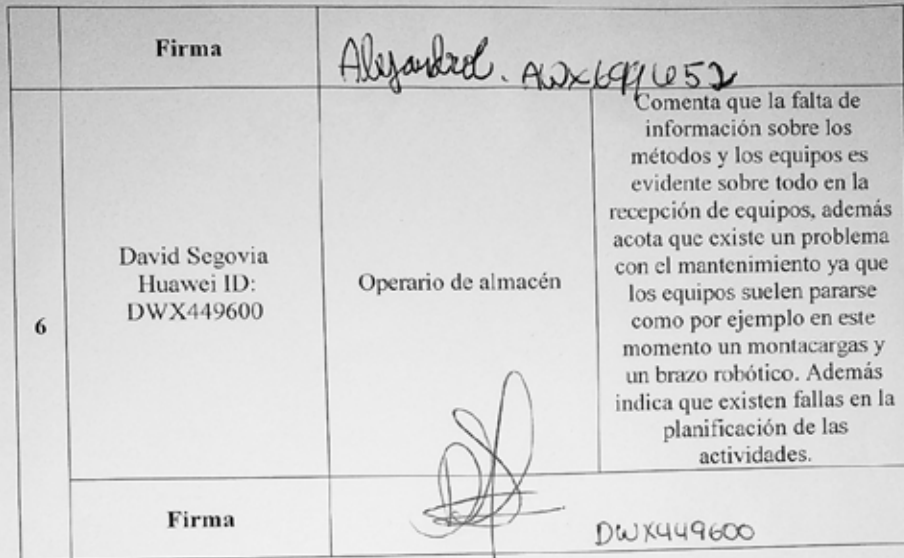 Firma
Alejandrol. AWX699652
6
David Segovia
Huawei ID:
DWX449600
Operario de almacén
Comenta que la falta de
información sobre los
métodos y los equipos es
evidente sobre todo en la
recepción de equipos, además
acota que existe un problema
con el mantenimiento ya que
los equipos suelen pararse
como por ejemplo en este
momento un montacargas y
un brazo robótico. Además
indica que existen fallas en la
planificación de las
actividades.
Firma
DWX449600